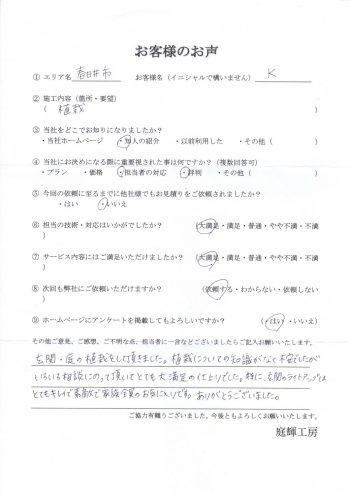 お客様のお声
① エリア名 春日井市 お客様名（イニシャルで構いません） K
② 施工内容（箇所・要望）
（ 植栽 ）
③ 当社をどこでお知りになりましたか？
・当社ホームページ ・知人の紹介 ・以前利用した ・その他（ ）
④ 当社にお決めになる際に重要視された事は何ですか？（複数回答可）
・プラン ・価格 ・担当者の対応 ・評判 ・その他（ ）
⑤ 今回の依頼に至るまでに他社様でもお見積りをご依頼されましたか？
・はい ・いいえ
⑥ 担当の技術・対応はいかがでしたか？ （大満足・満足・普通・やや不満・不満
）
⑦ サービス内容にはご満足いただけましたか？ （大満足・満足・普通・やや不満・不満
）
⑧ 次回も弊社にご依頼いただけますか？ （依頼する・わからない・依頼しない
）
⑨ ホームページにアンケートを掲載してもよろしいですか？ （はい・いいえ）
その他ご意見、ご感想、ご不明な点、担当者に一言などございましたらご記入お願いいたします。
玄関・庭の植栽をして頂きました。植栽についての知識がなく不安でしたが
いろいろ相談にのって頂いてとても大満足の仕上りでした。特に、玄関のライトアップは
とてもキレイで素敵で家族全員のお気に入りです。ありがとうございました。
ご協力有難うございました。今後ともよろしくお願いいたします。
庭輝工房